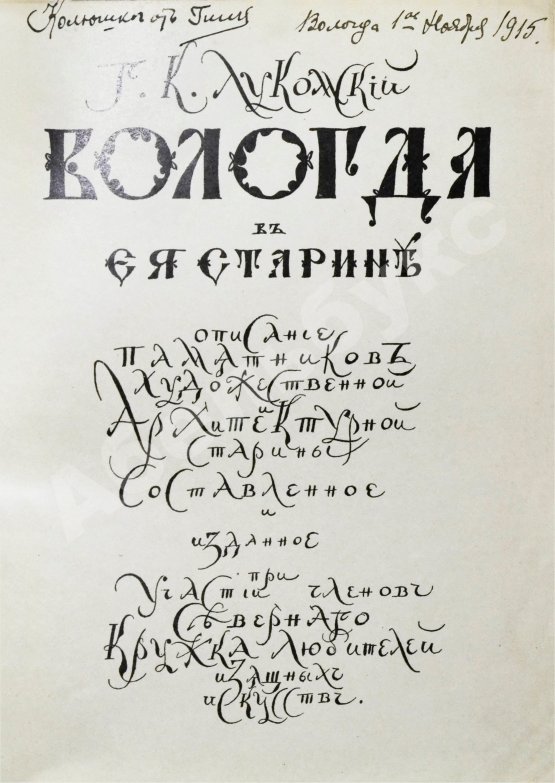 Вологда 1ое Ноября 1915.
Г. К. Лукомскій
ВОЛОГДА
ВЪ
ЕЯ СТАРИНѢ
ОПИСАНІЕ
ПАМЯТНИКОВЪ
ХУДОЖЕСТВЕННОЙ
И
АРХИТЕКТУРНОЙ
СТАРИНЫ
СОСТАВЛЕННОЕ
и
изданное
при
Участіи членовъ
Сѣвернаго
Кружка Любителей
изящныхъ
искусствъ.